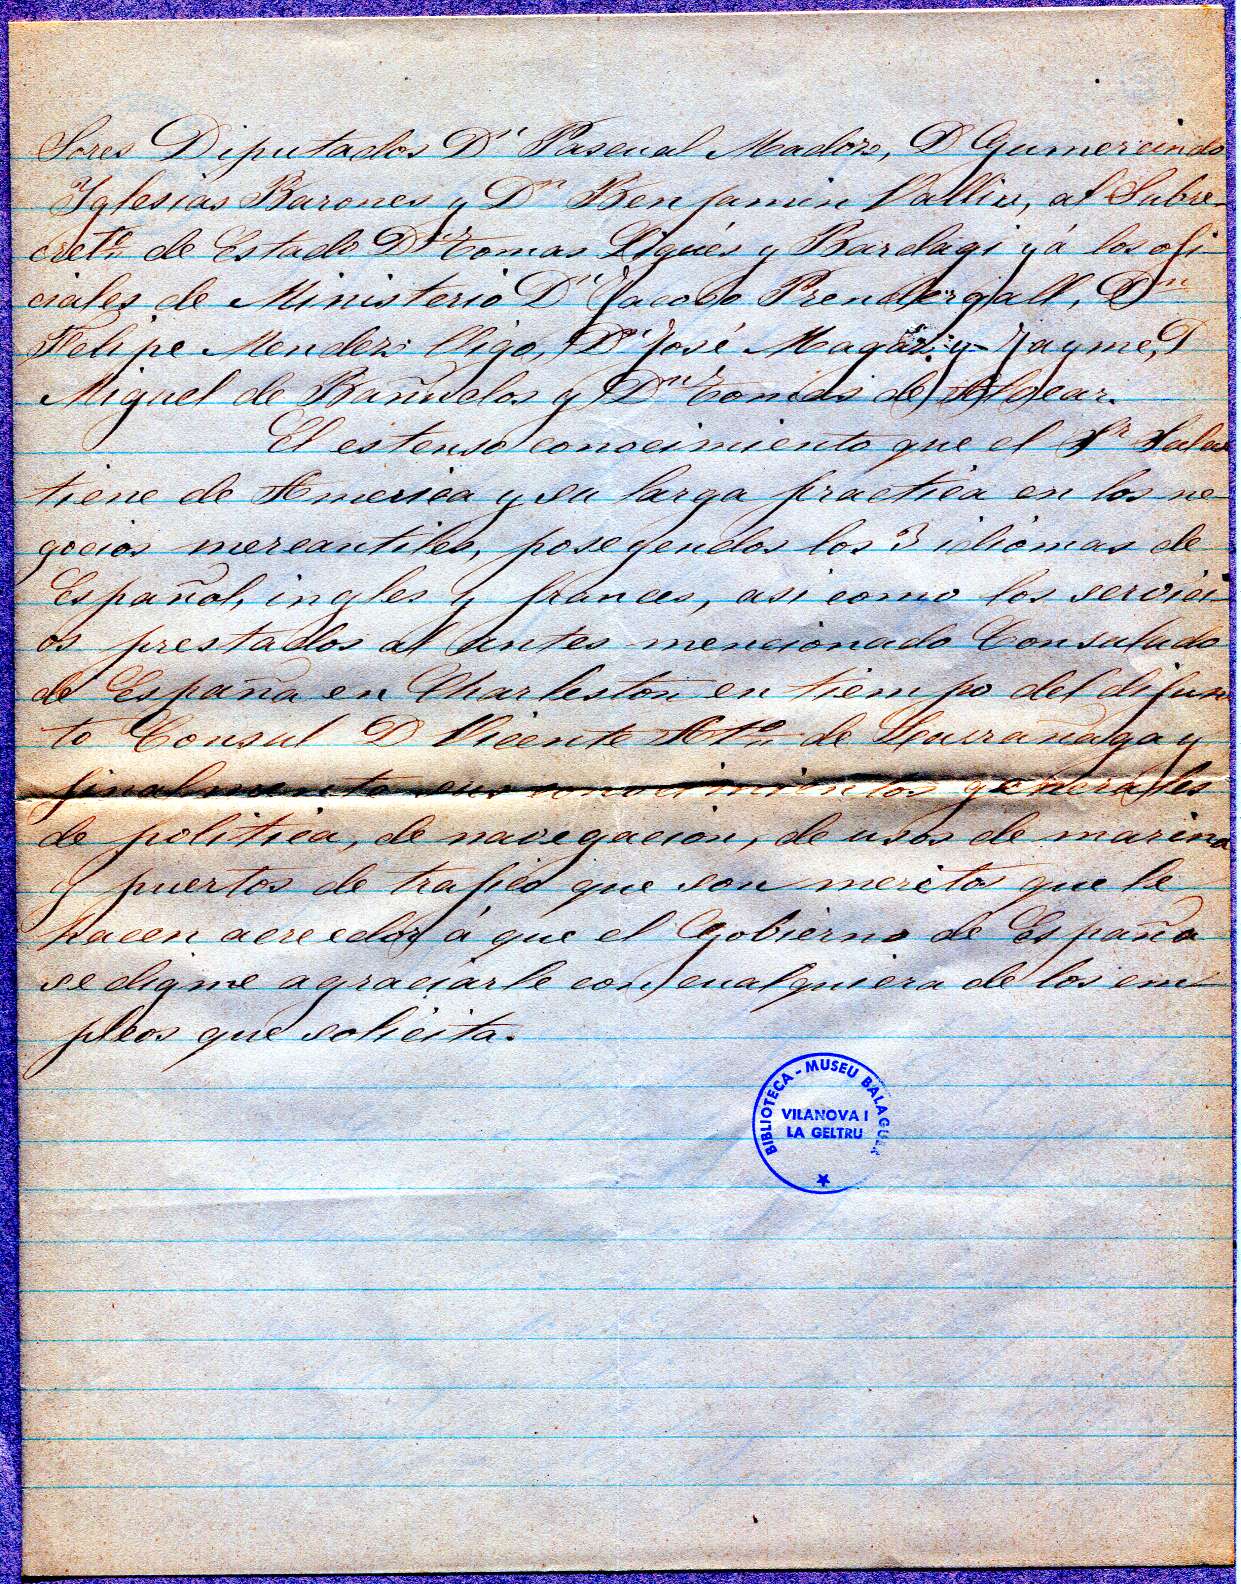 Sores Diputados Dn Pascual Madoz, D Gumercindo
Yglesias Barones y Dn Benjamin Vallin, al Subse-
creto de Estado Dn Tomas Ligués y Bardagi y á los ofi
ciales de Ministerio Dn Jacobo Prendergall, Dn
Felipe Mendez Vigo, Dn José Magaz y Jayme, D
Miguel de Bañuelos y Dn Tomás de Algear.
El estenso conocimiento que el Sr Salas
tiene de America y su larga practica en los ne
gocios mercantiles, poseyendos los 3 idiomas de
Español, ingles y frances, asi como los servici
os prestados al antes mencionado Consulado
de España en Charleston en tiempo del difun
to Consul D Vicente Anto de
finalmente sus conocimientos generales
de politica, de navegacion, de usos de marina
y puertos de trafico que son meritos que le
hacen acreedor á que el Gobierno de España
se digne agraciarle con cualquiera de los em
pleos que solicita.
BIBLIOTECA - MUSEU BALAGUER
VILANOVA I
LA GELTRU